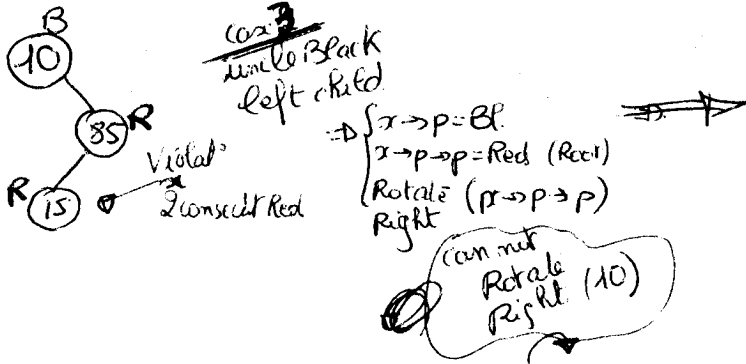 B
10
85 R
R 15
Violat°
2 consecut Red
case 3
uncle Black
left child
⇒ { x→p = Bl.
x→p→p = Red (Root)
Rotate (x→p→p)
Right
can not
Rotate
Right (10)